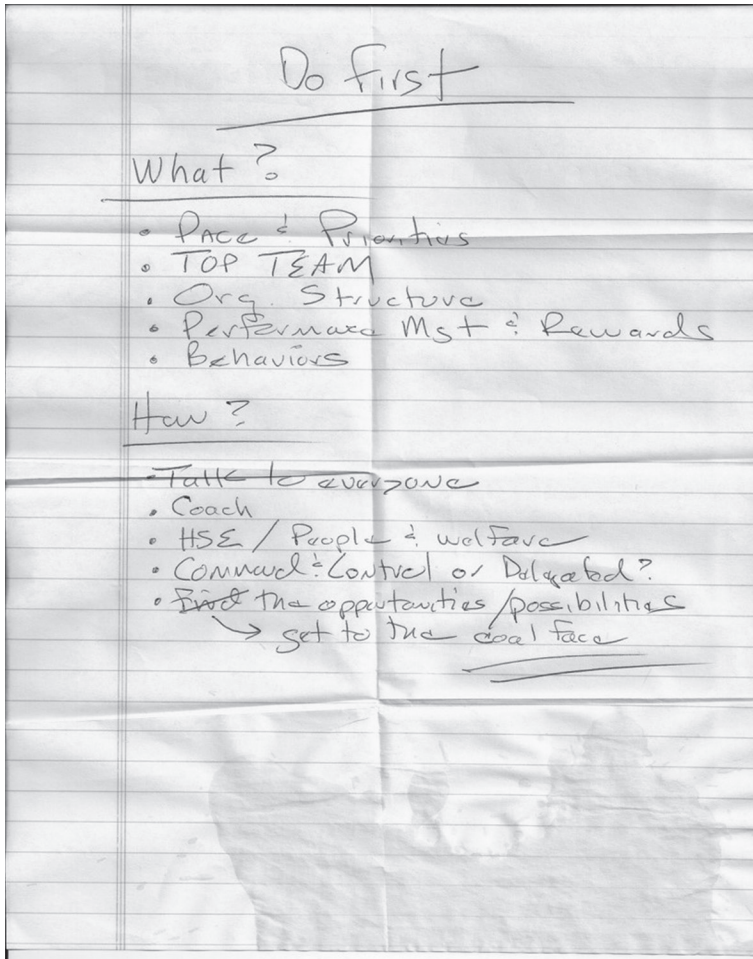 Do First
What?
• Pace & Priorities
• TOP TEAM
• Org. Structure
• Performace Mgt & Rewards
• Behaviors
How?
• Talk to everyone
• Coach
• HSE / People & welfare
• Command & Control or Delegated?
• Find the opportunities/possibilities
→ get to the coal face